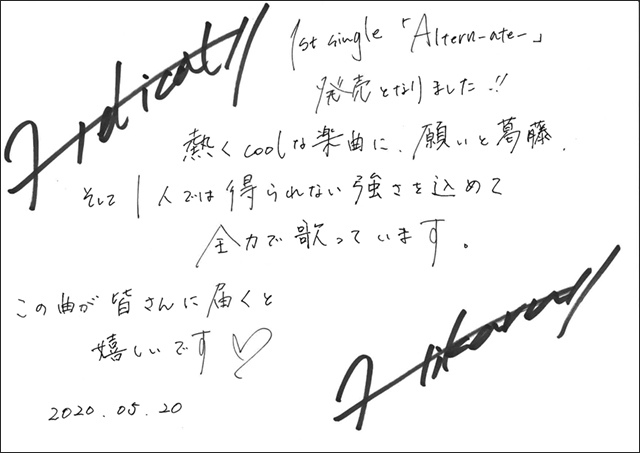 1st single 「Altern-ate-」
発売となりました!!
熱くcoolな楽曲に、願いと葛藤、
そして1人では得られない強さを込めて
全力で歌っています。
この曲が皆さんに届くと
嬉しいです♡
2020.05.20
Hikaru//